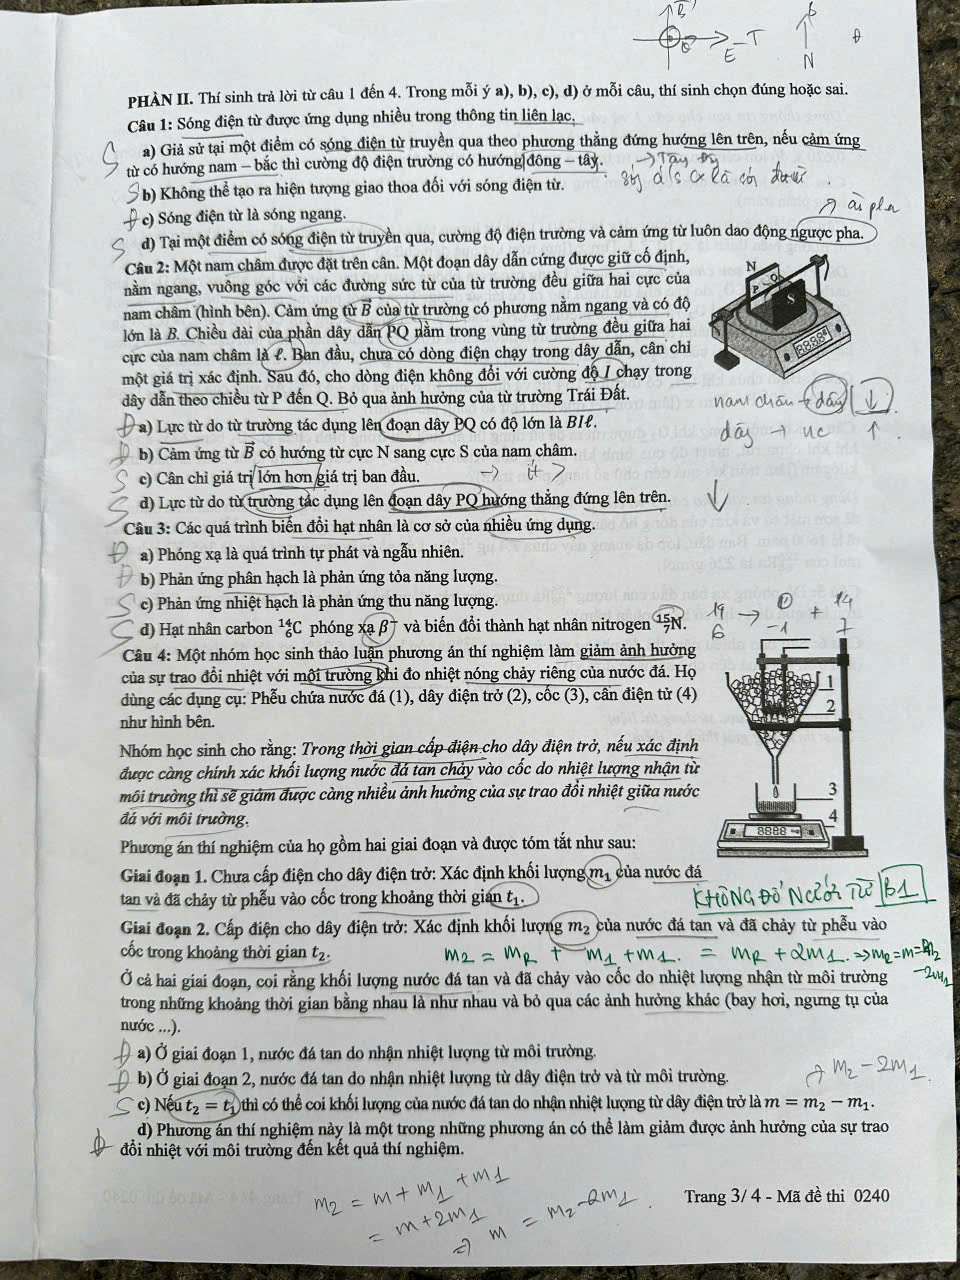 B
E
T
N
PHẦN II. Thí sinh trả lời từ câu 1 đến 4. Trong mỗi ý a), b), c), d) ở mỗi câu, thí sinh chọn đúng hoặc sai.
Câu 1: Sóng điện từ được ứng dụng nhiều trong thông tin liên lạc.
S a) Giả sử tại một điểm có sóng điện từ truyền qua theo phương thẳng đứng hướng lên trên, nếu cảm ứng
từ có hướng nam – bắc thì cường độ điện trường có hướng đông – tây. → Tây
S b) Không thể tạo ra hiện tượng giao thoa đối với sóng điện từ.
Đ c) Sóng điện từ là sóng ngang.
S d) Tại một điểm có sóng điện từ truyền qua, cường độ điện trường và cảm ứng từ luôn dao động ngược pha.
Câu 2: Một nam châm được đặt trên cân. Một đoạn dây dẫn cứng được giữ cố định,
nằm ngang, vuông góc với các đường sức từ của từ trường đều giữa hai cực của
nam châm (hình bên). Cảm ứng từ B⃗ của từ trường có phương nằm ngang và có độ
lớn là B. Chiều dài của phần dây dẫn PQ nằm trong vùng từ trường đều giữa hai
cực của nam châm là ℓ. Ban đầu, chưa có dòng điện chạy trong dây dẫn, cân chỉ
một giá trị xác định. Sau đó, cho dòng điện không đổi với cường độ I chạy trong
dây dẫn theo chiều từ P đến Q. Bỏ qua ảnh hưởng của từ trường Trái Đất.
N
P
Q
S
8888
nam châm → dây ↓
dây → nc ↑
Đ a) Lực từ do từ trường tác dụng lên đoạn dây PQ có độ lớn là BIℓ.
Đ b) Cảm ứng từ B⃗ có hướng từ cực N sang cực S của nam châm.
S c) Cân chỉ giá trị lớn hơn giá trị ban đầu. → ít >
S d) Lực từ do từ trường tác dụng lên đoạn dây PQ hướng thẳng đứng lên trên. ↓
Câu 3: Các quá trình biến đổi hạt nhân là cơ sở của nhiều ứng dụng.
Đ a) Phóng xạ là quá trình tự phát và ngẫu nhiên.
Đ b) Phản ứng phân hạch là phản ứng tỏa năng lượng.
S c) Phản ứng nhiệt hạch là phản ứng thu năng lượng.
S d) Hạt nhân carbon ¹⁴₆C phóng xạ β⁻ và biến đổi thành hạt nhân nitrogen ¹⁵₇N.
14 → 0 + 14
6 -1 7
Câu 4: Một nhóm học sinh thảo luận phương án thí nghiệm làm giảm ảnh hưởng
của sự trao đổi nhiệt với môi trường khi đo nhiệt nóng chảy riêng của nước đá. Họ
dùng các dụng cụ: Phễu chứa nước đá (1), dây điện trở (2), cốc (3), cân điện tử (4)
như hình bên.
1
2
3
4
8888
Nhóm học sinh cho rằng: Trong thời gian cấp điện cho dây điện trở, nếu xác định
được càng chính xác khối lượng nước đá tan chảy vào cốc do nhiệt lượng nhận từ
môi trường thì sẽ giảm được càng nhiều ảnh hưởng của sự trao đổi nhiệt giữa nước
đá với môi trường.
Phương án thí nghiệm của họ gồm hai giai đoạn và được tóm tắt như sau:
Giai đoạn 1. Chưa cấp điện cho dây điện trở: Xác định khối lượng m₁ của nước đá
tan và đã chảy từ phễu vào cốc trong khoảng thời gian t₁.
KHÔNG ĐỔ NƯỚC TỪ B1
Giai đoạn 2. Cấp điện cho dây điện trở: Xác định khối lượng m₂ của nước đá tan và đã chảy từ phễu vào
cốc trong khoảng thời gian t₂.
m₂ = mR + m₁ + m₁ = mR + 2m₁ ⇒ mR = m = m₂ - 2m₁
Ở cả hai giai đoạn, coi rằng khối lượng nước đá tan và đã chảy vào cốc do nhiệt lượng nhận từ môi trường
trong những khoảng thời gian bằng nhau là như nhau và bỏ qua các ảnh hưởng khác (bay hơi, ngưng tụ của
nước ...).
Đ a) Ở giai đoạn 1, nước đá tan do nhận nhiệt lượng từ môi trường.
Đ b) Ở giai đoạn 2, nước đá tan do nhận nhiệt lượng từ dây điện trở và từ môi trường.
→ m₂ - 2m₁.
S c) Nếu t₂ = t₁ thì có thể coi khối lượng của nước đá tan do nhận nhiệt lượng từ dây điện trở là m = m₂ − m₁.
Đ d) Phương án thí nghiệm này là một trong những phương án có thể làm giảm được ảnh hưởng của sự trao
đổi nhiệt với môi trường đến kết quả thí nghiệm.
m₂ = m + m₁ + m₁
= m + 2m₁
⇒ m = m₂ - 2m₁.
Trang 3/ 4 - Mã đề thi 0240